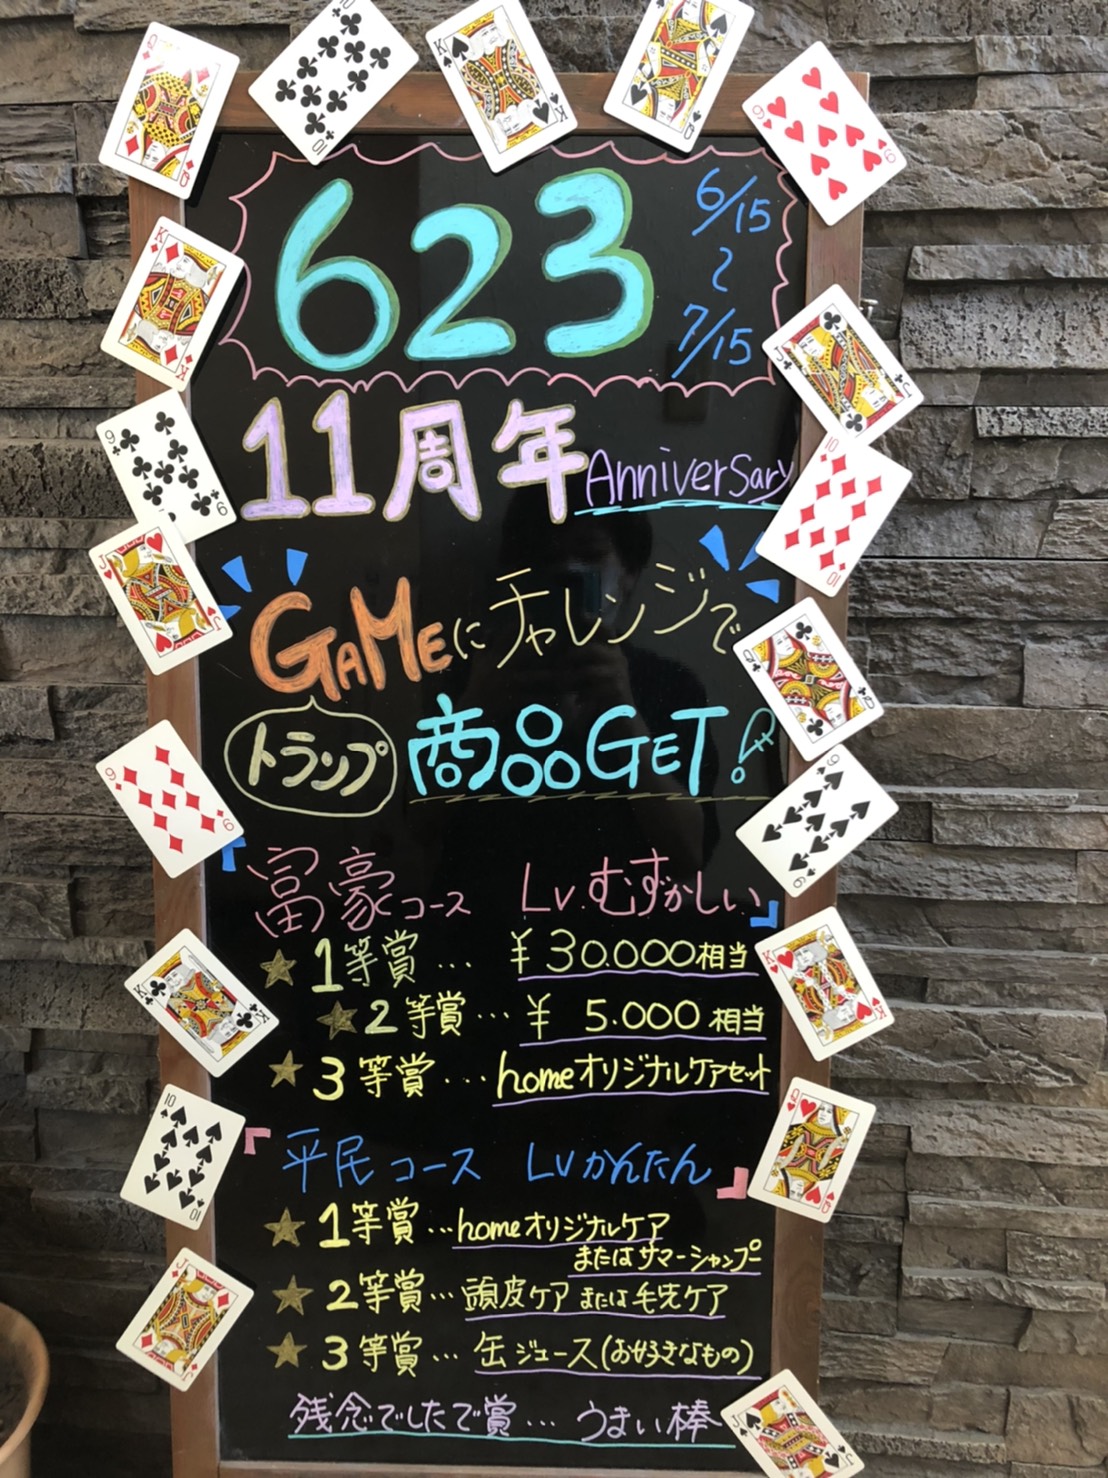 623
6/15
〜
7/15
11周年 Anniversary
GAMEにチャレンジで
トランプ 商品GET!
『富豪コース Lv.むずかしい』
★1等賞… ¥30.000相当
★2等賞… ¥5.000相当
★3等賞… homeオリジナルケアセット
『平民コース Lvかんたん』
★1等賞…homeオリジナルケア
またはサマーシャンプー
★2等賞…頭皮ケアまたは毛先ケア
★3等賞…缶ジュース(お好きなもの)
残念でしたで賞… うまい棒